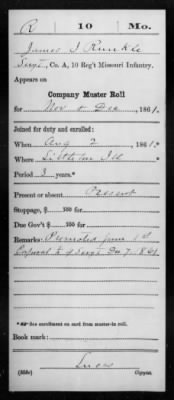 R | 10 | Mo.
James J Runkle
Sergt, Co. A, 10 Reg't Missouri Infantry.
Appears on
Company Muster Roll
for Nov & Dec, 1861.
Joined for duty and enrolled:
When Aug 2, 1861.*
Where Littleton Ill
Period 3 years.*
Present or absent Present
Stoppage, $ 100 for
Due Gov't $ 100 for
Remarks: Promoted from 1st
Corporal to Sergt Dec 7, 1861
*See enrollment on card from muster-in roll.
Book mark:
Lucas
(858c) Copyist.